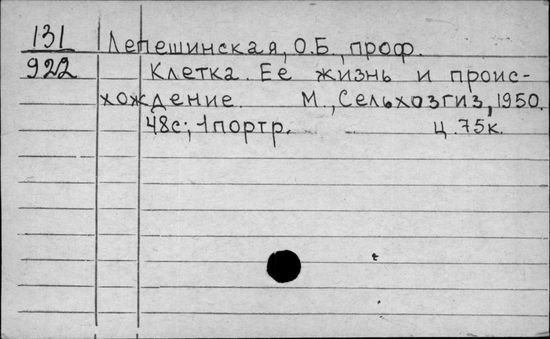 131 Лепешинская, О.Б., проф.
922 Клетка. Ее жизнь и проис-
хождение. М., Сельхозгиз, 1950.
48с; 1 портр. ц. 75к.